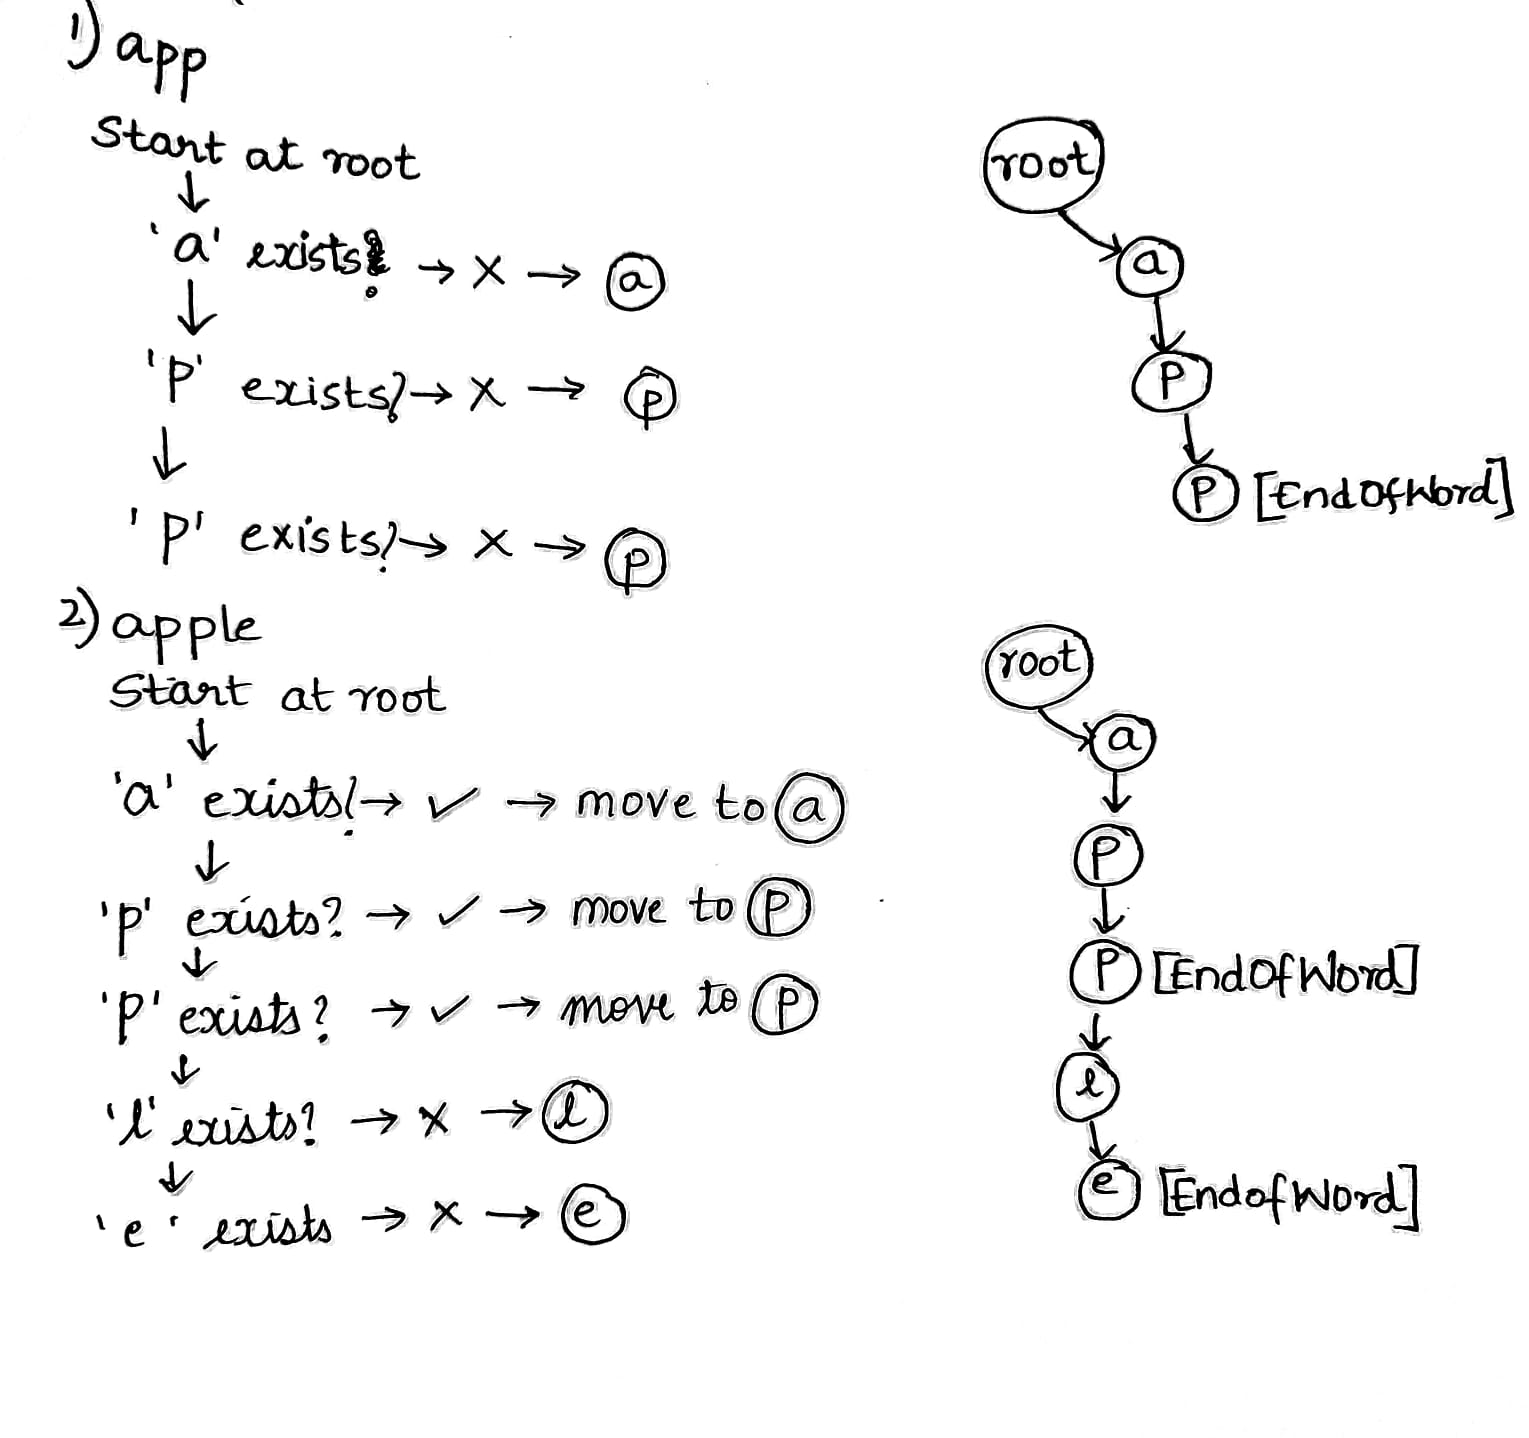 1) app
Start at root
↓
'a' exists? → X → a
↓
'P' exists? → X → P
↓
'P' exists? → X → P
root
a
P
P [EndOfWord]
2) apple
Start at root
↓
'a' exists? → ✓ → move to a
↓
'p' exists? → ✓ → move to P
↓
'p' exists? → ✓ → move to P
↓
'l' exists? → X → l
↓
'e' exists → X → e
root
a
P
P [EndOfWord]
l
e [EndofWord]